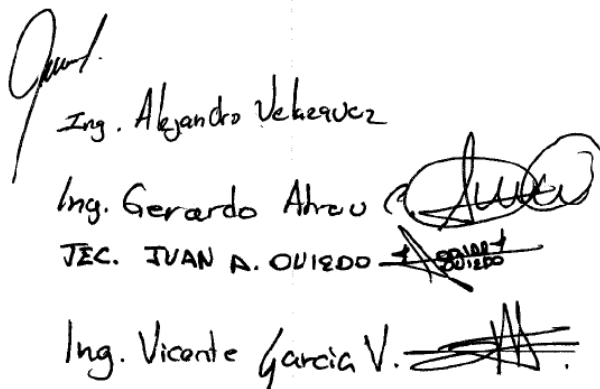 Ing. Alejandro Velazquez
Ing. Gerardo Abreu C.
TEC. JUAN A. OVIEDO
OVIEDO
Ing. Vicente Garcia V.